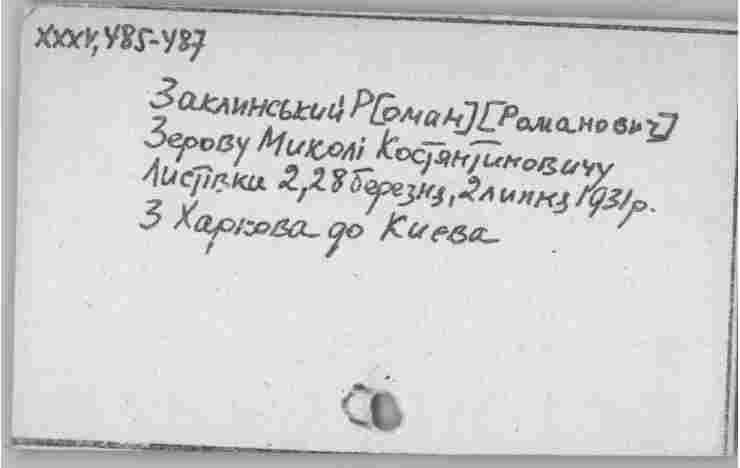 XXXV, 485-487
Заклинський Р[оман] [Романович]
Зерову Миколі Костянтиновичу
Листівки 2, 28 березня, 2 липня 1931 р.
З Харкова до Києва